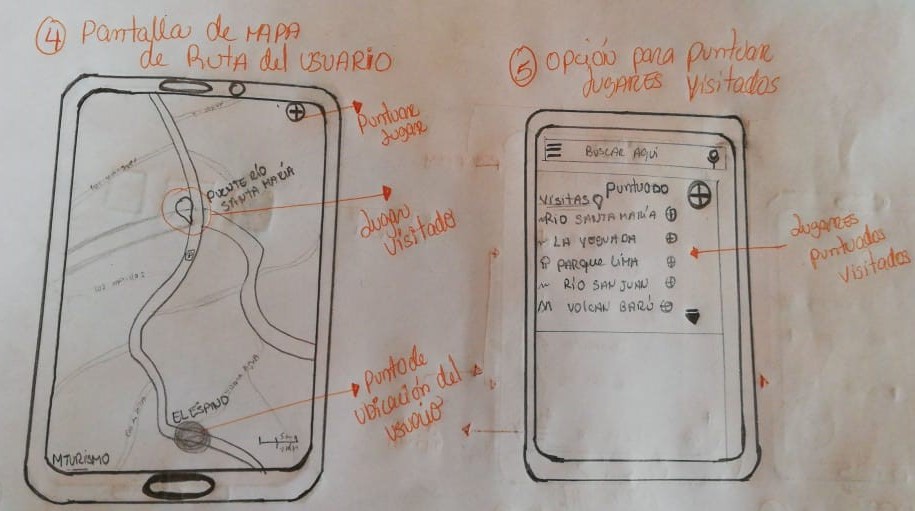 ④ Pantalla de MAPA
de RUTA del USUARIO
Puntuar
Lugar
PUENTE RÍO
SANTA MARÍA
Lugar
Visitado
Punto de
ubicación del
usuario
EL ESPINO
MTURISMO
⑤ OPCIÓN PARA PUNTUAR
LUGARES VISITADOS
BUSCAR AQUÍ
PUNTUADO
VISITAS
RIO SANTA MARÍA
LA YEGUADA
PARQUE LIMA
RÍO SAN JUAN
VOLCAN BARÚ
LUGARES
PUNTUADOS
VISITADOS